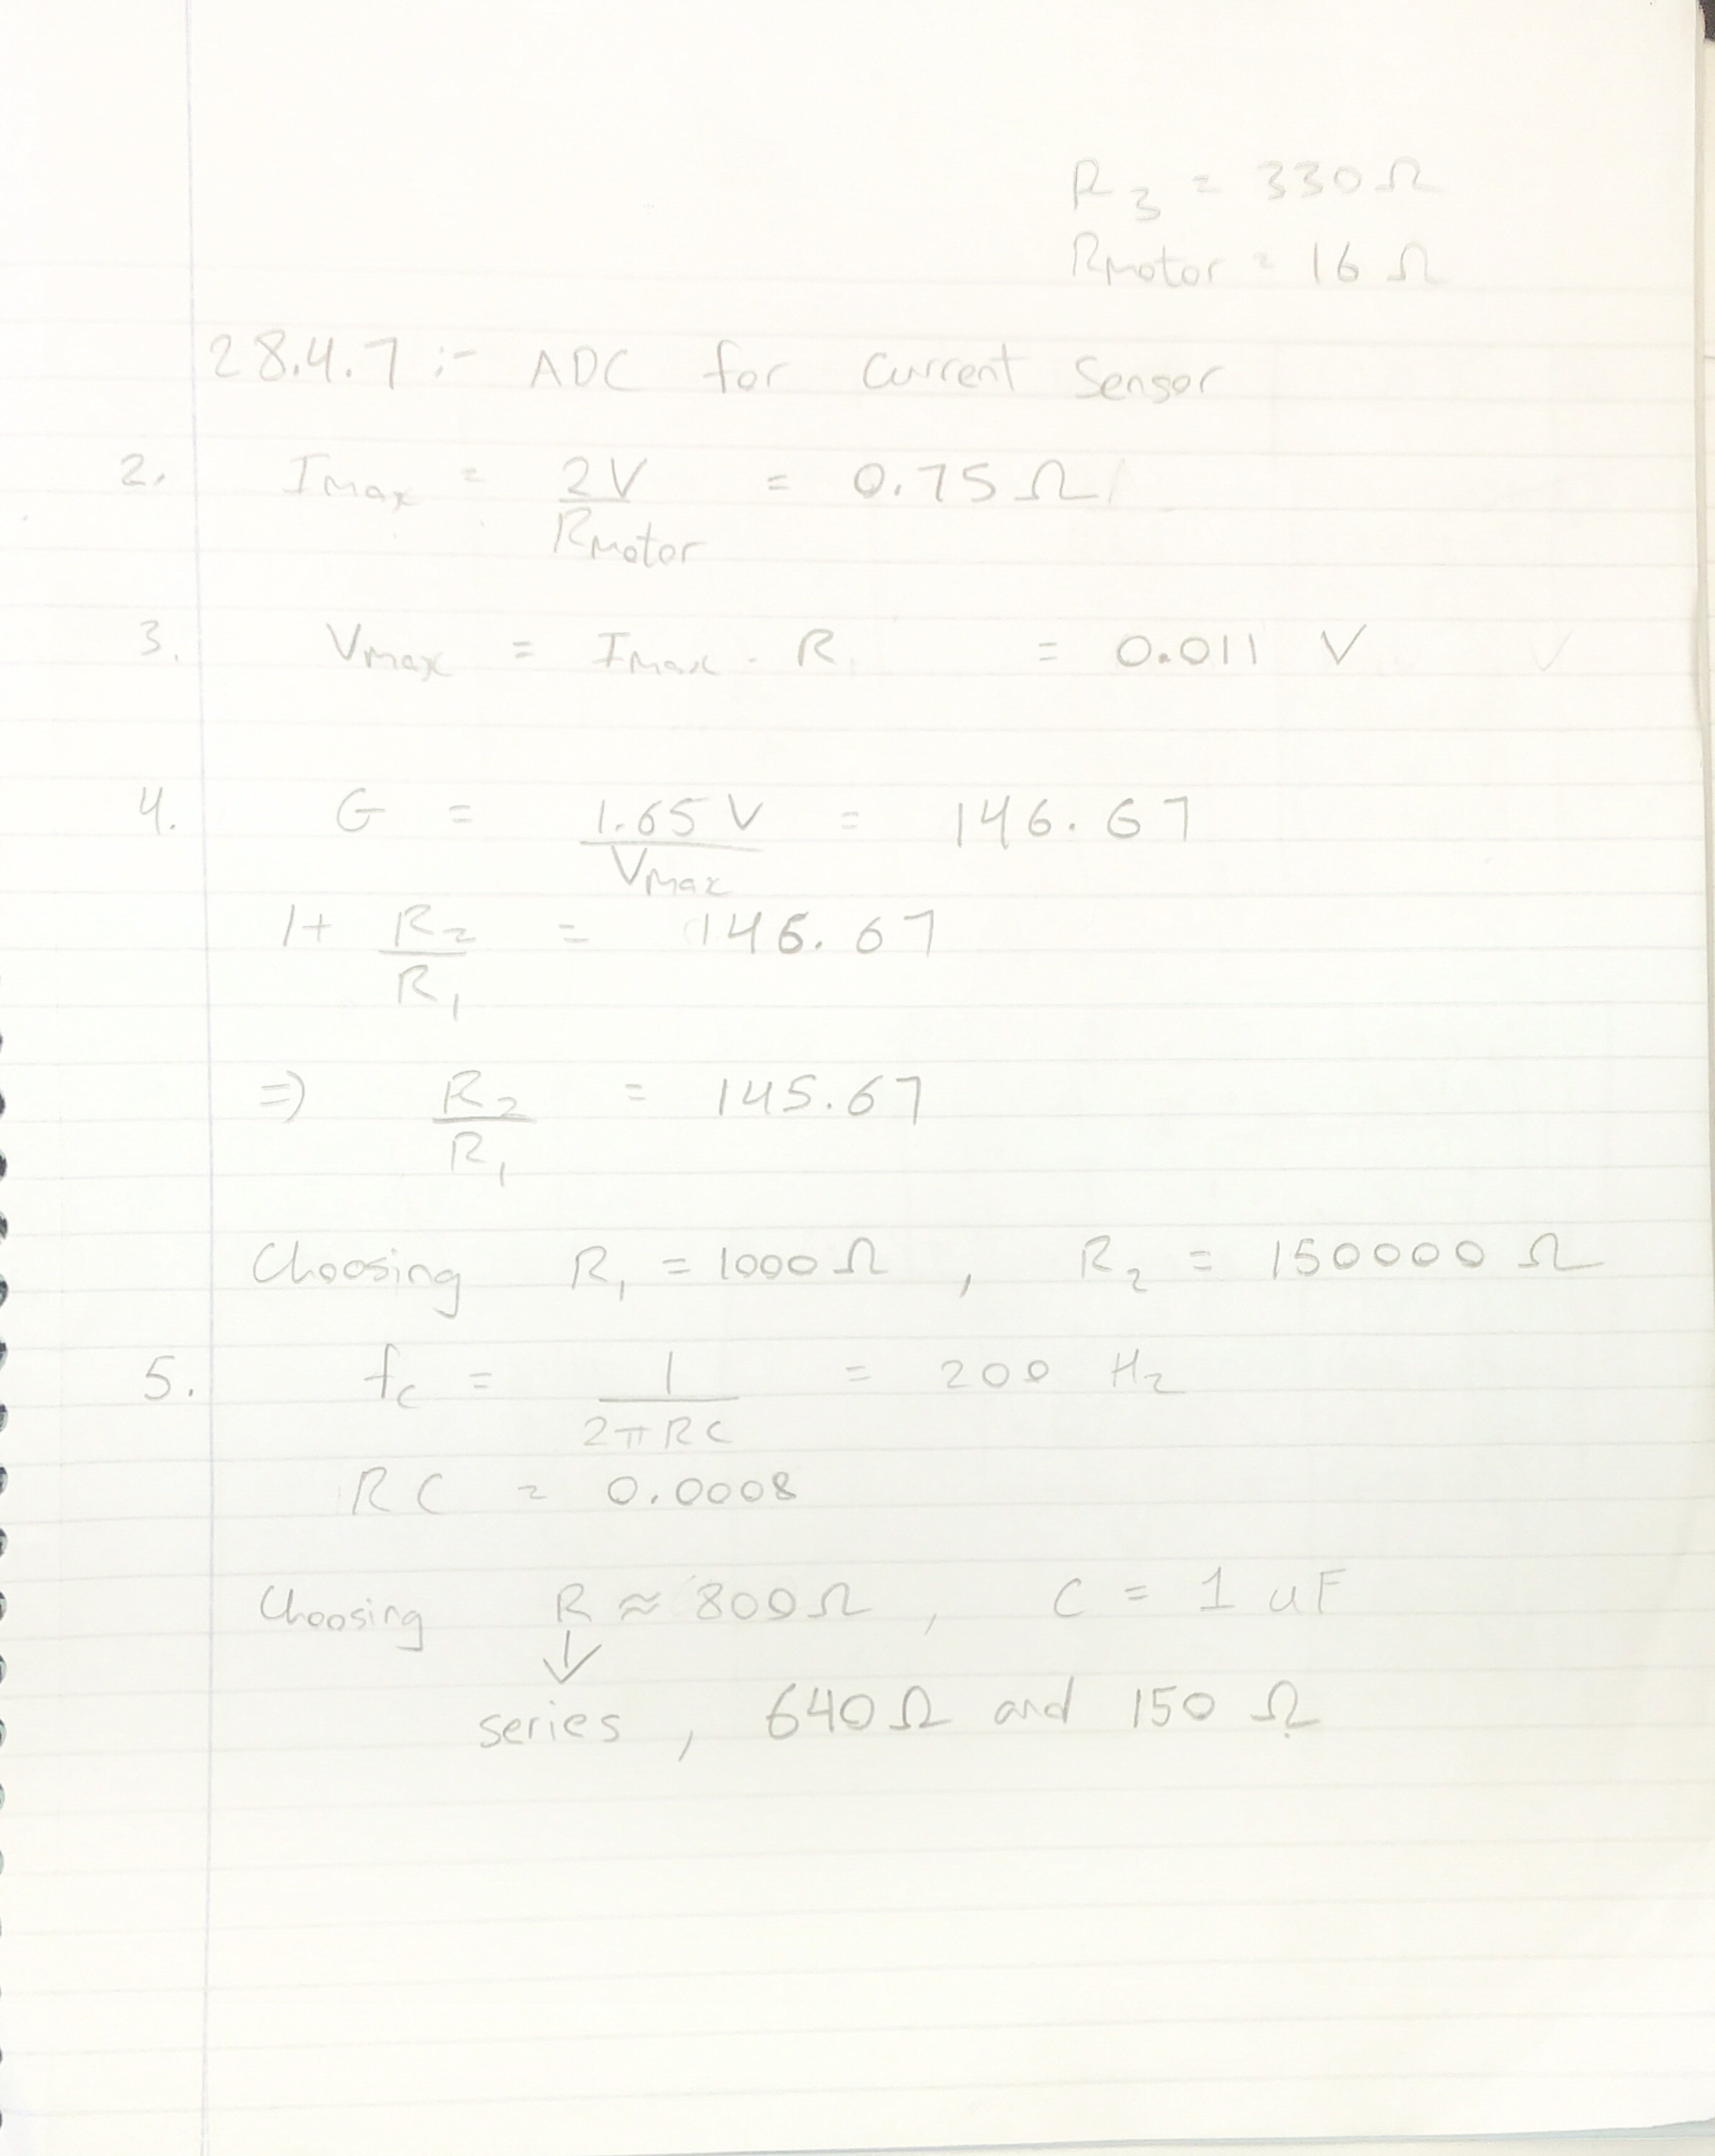 R3 = 330 Ω
Rmotor = 16 Ω
28.4.7 :- ADC for Current Sensor
2. Imax = 2V / Rmotor = 0.75 Ω
3. Vmax = Imax . R = 0.011 V
4. G = 1.65 V / Vmax = 146.67
1 + R2 / R1 = 146.67
=) R2 / R1 = 145.67
Choosing R1 = 1000 Ω , R2 = 150000 Ω
5. fc = 1 / 2πRC = 200 Hz
RC = 0.0008
Choosing R ≈ 800 Ω , C = 1 uF
↓
series , 640 Ω and 150 Ω